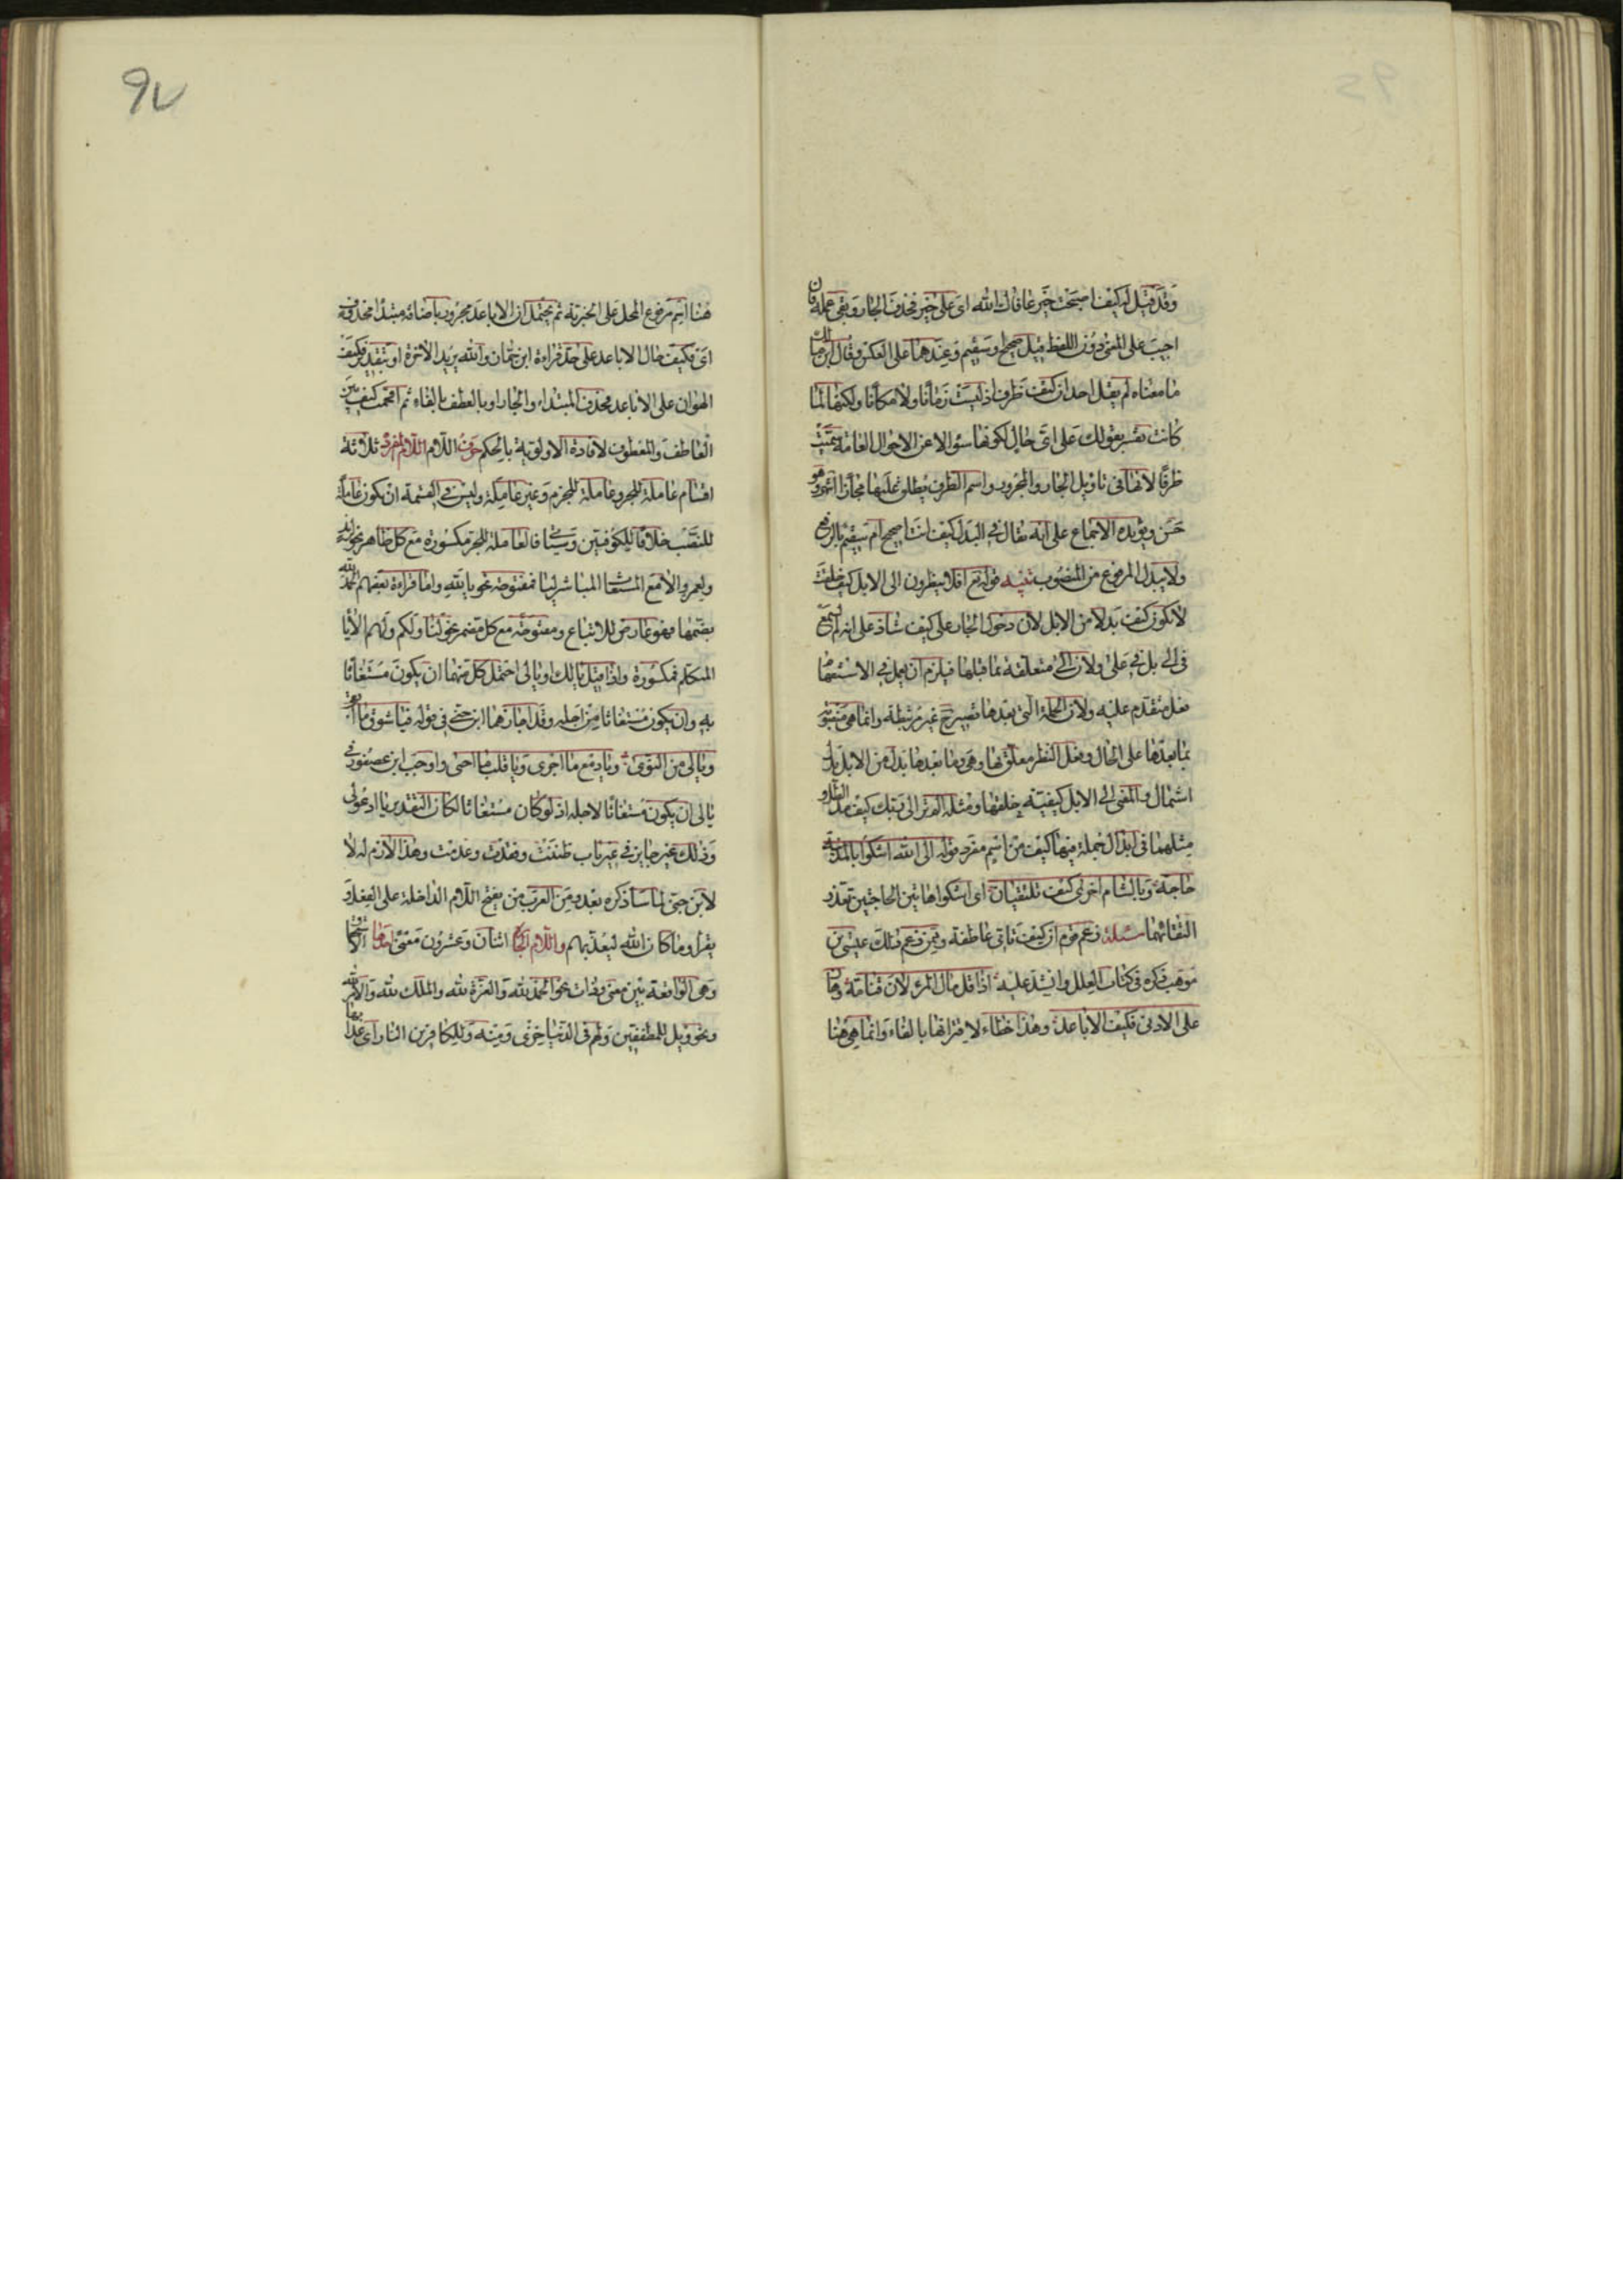 وقد قيل له كيف اصبحت خير عافاك الله اى على خير فحذف الجار وبقى عمله فان
اجيب على المعنى دون اللفظ قيل صحيح او سقيم وعندهما على العكس وقال ابن مالك
ما معناه لم يقل احد ان كيف ظرف اذ ليست زمانا ولا مكانا ولكنها لما
كانت تفسر بقولك على اى حال لكونها سؤالا عن الاحوال العامة سميت
ظرفا لانها فى تاويل الجار والمجرور واسم الظرف يطلق عليها مجازا انتهى وهو
حسن ويؤيده الاجماع على انه يقال فى البدل كيف انت اصحيح ام سقيم بالرفع
ولا يبدل المرفوع من المنصوب تنبيه قوله تع افلا ينظرون الى الابل كيف خلقت
لا تكون كيف بدلا من الابل لان دخول الجار على كيف شاذ على انه لم يسمع
فى الى بل فى على ولان الى متعلقة بما قبلها فيلزم ان يعمل فى الاستفهام
فعل متقدم عليه ولان الجملة التى بعدها تصير ح غير مرتبطة وانما هى منصوبة
بما بعدها على الحال وفعل النظر معلق بها وهى وما بعدها بدل من الابل بدل
اشتمال والمعنى الى الابل كيفية خلقها ومثله الم تر الى ربك كيف مد الظل و
مثلهما فى ابدال جملة فيها كيف من اسم مفرد قوله الى الله اشكوا بالمدينة
حاجة وبالشام اخرى كيف تلتقيان اى اشكوا هاتين الحاجتين تعذر
التقائهما مسئلة زعم قوم ان كيف تاتى عاطفة وممن زعم ذلك عيسى بن
موهب ذكره فى كتاب العلل وانشد عليه اذا قل مال المرء لانت قناته وهان
على الادنى فكيف الاباعد وهذا خطاء لاقترانها بالفاء وانما هى هنا
هنا اسم مرفوع المحل على الخبرية ثم يحتمل ان الاباعد مجرور باضافة مبتدا محذوف
اى فكيف حال الاباعد على حد قراءة ابن جماز والله يريد الاخرة او بتقدير فكيف
الهوان على الاباعد فحذف المبتداء والجار او بالعطف بالفاء ثم اقحمت كيف بين
العاطف والمعطوف لافادة الاولوية بالحكم حرف اللام اللام المفردة ثلاثة
اقسام عاملة للجر وعاملة للجزم وغير عاملة وليس فى القسمة ان يكون عاملة
للنصب خلافا للكوفيين وسياتى فالعاملة للجر مكسورة مع كل ظاهر نحو لزيد
ولعمرو الا مع المستغاث المباشر ليا فمفتوحة نحو يا لله واما قراءة بعضهم الحمد لله
بضمها فهو عارض للاتباع ومفتوحة مع كل مضمر نحو لنا ولكم ولهم الا يا
المتكلم فمكسورة واذا قيل يا لك او يا لى احتمل كل منهما ان يكون مستغاثا
به وان يكون مستغاثا من اجله وقد اجازهما ابن جنى فى قوله فيا شوق ما ابقى
ويا لى من النوى ويا دمع ما اجرى ويا قلب ما احمى واوجب ابن عصفور فى
يا لى ان يكون مستغاثا لاجله اذ لو كان مستغاثا لكان التقدير يا ادعو لى
وذلك غير جايز فى غير باب ظننت وفقدت وعدمت وهذا لازم له لا
لابن جنى لما ساذكره بعد ومن العرب من يفتح اللام الداخلة على الفعل و
يقرا وما كان الله ليعذبهم واللام الجارة اثنان وعشرون معنى احدها الاستحقاق
وهى الواقعة بين معنى وذات نحو الحمد لله والعزة لله والملك لله والامر لله
ونحو ويل للمطففين ولهم فى الدنيا خزى ومنه وللكافرين النار اى عذابها
97